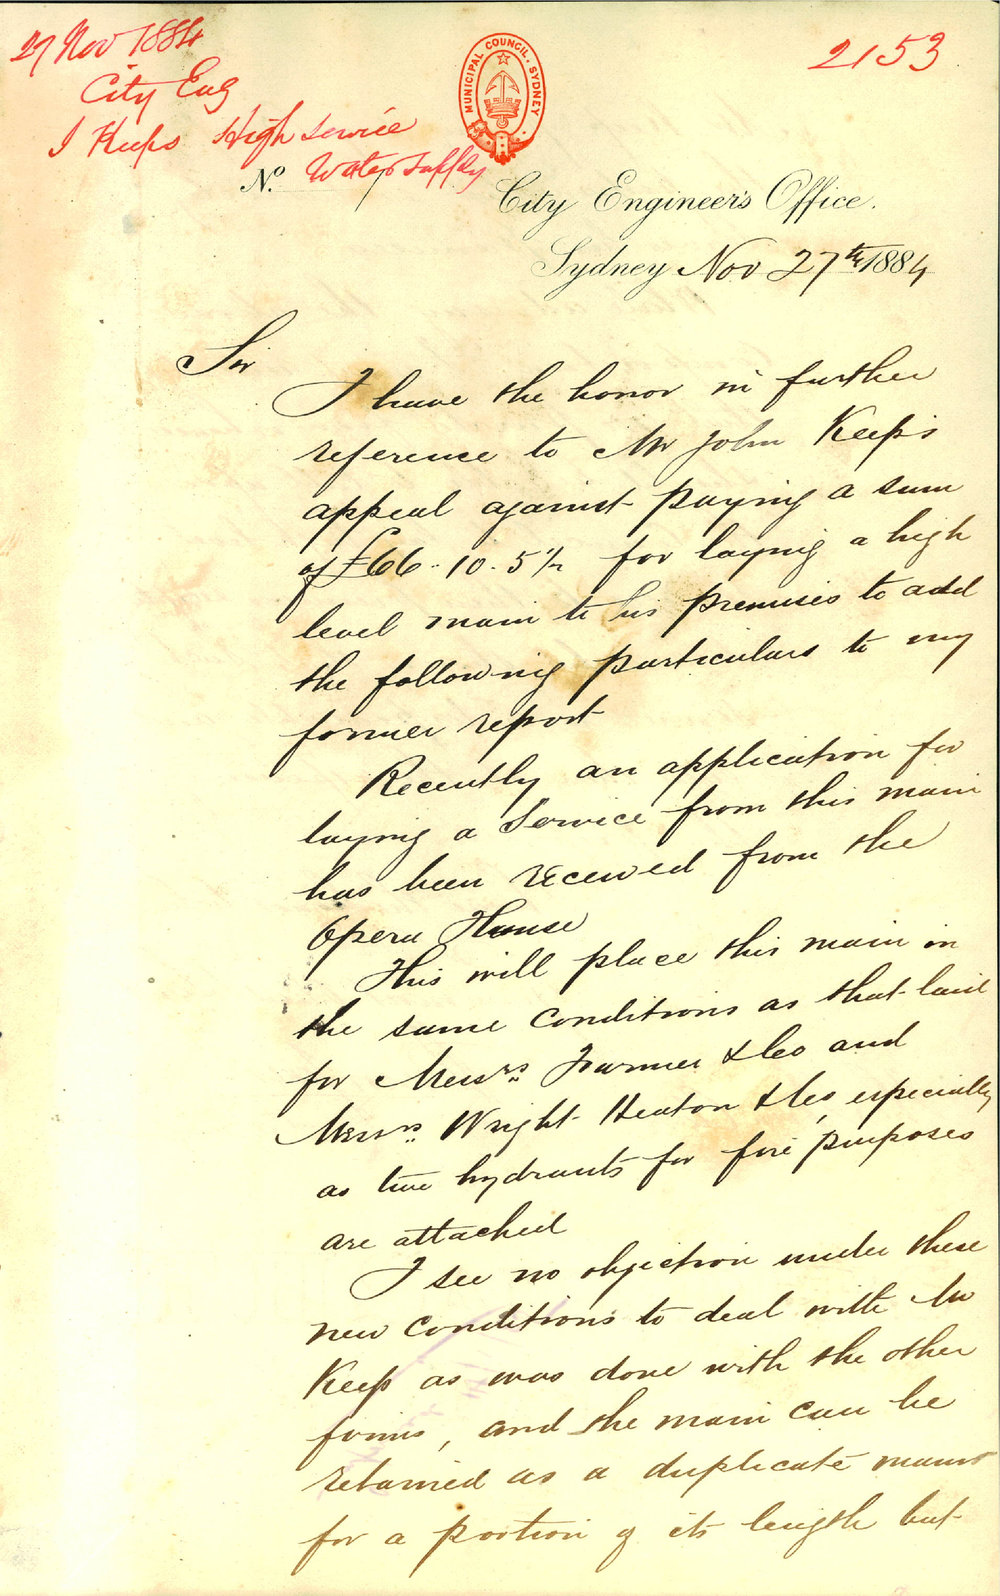 27 Nov 1884
2153
City Eng
J Keeps High Service
Water Supply
MUNICIPAL COUNCIL. SYDNEY
No.
City Engineer's Office.
Sydney Nov 27th 1884
Sir
I have the honor in further
reference to Mr John Keep's
appeal against paying a sum
of £66.10.5½ for laying a high
level main to his premises to add
the following particulars to my
former report
Recently an application for
laying a Service from this main
has been received from the
Opera House
This will place this main in
the same conditions as that laid
for Messrs. Farmer & Co and
Messrs. Wright Heaton & Co, especially
as two hydrants for fire purposes
are attached
I see no objection under these
new conditions to deal with Mr
Keep as was done with the other
firms, and the main can be
retained as a duplicate main
for a portion of its length but